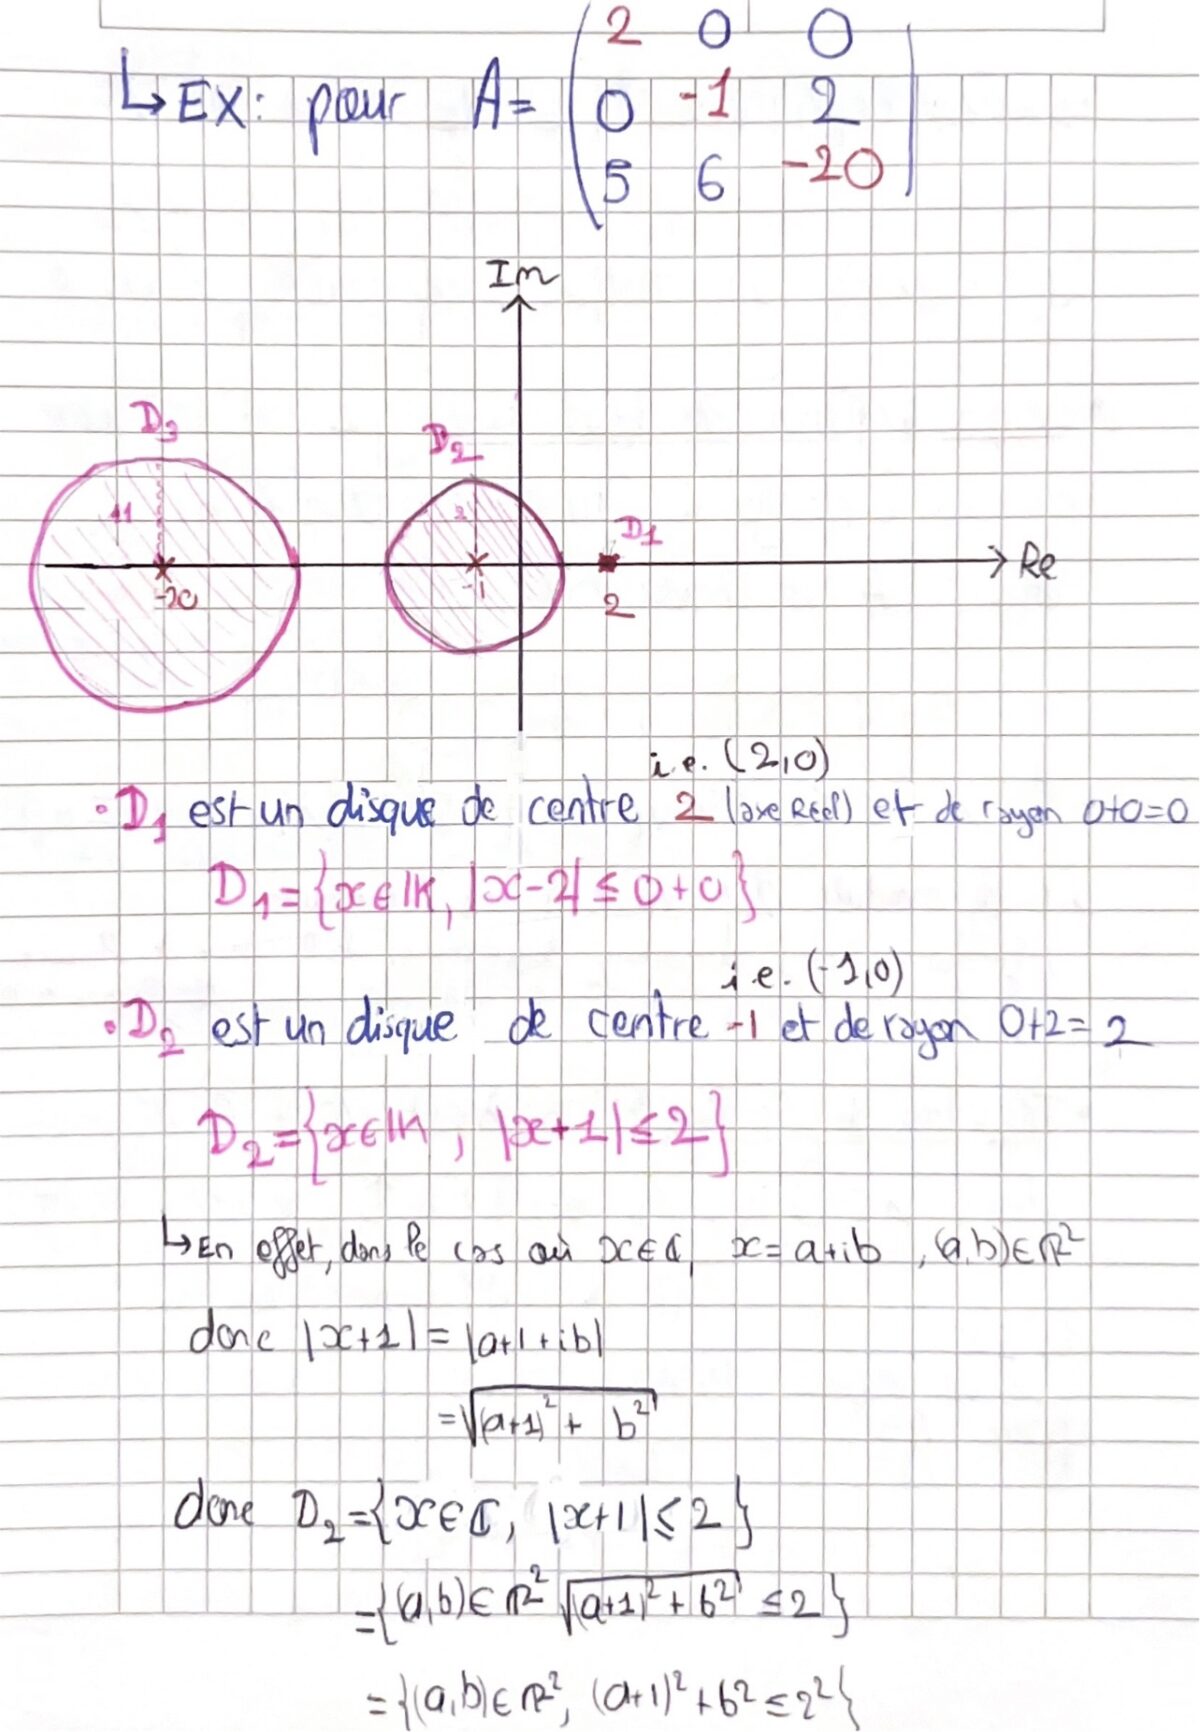 2 0 0
↳ EX: pour A= 0 -1 2
5 6 -20
Im
D3
D2
11
2
D1
Re
-20
-1
2
i.e. (2,0)
• D1 est un disque de centre 2 (axe Réel) et de rayon 0+0=0
D1={x∈IK, |x-2| ≤ 0+0}
i.e. (-1,0)
• D2 est un disque de centre -1 et de rayon 0+2= 2
D2={x∈IK, |x+1| ≤ 2}
↳ En effet, dans le cas où x∈ℂ, x=a+ib, (a,b)∈ℝ²
donc |x+1|= |a+1+ib|
=√((a+1)² + b²)
donc D2={x∈ℂ, |x+1| ≤ 2}
={(a,b)∈ℝ² √((a+1)²+b²) ≤2}
={(a,b)∈ℝ², (a+1)²+b² ≤2²}